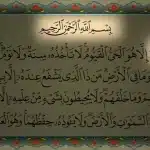 بِسْمِ اللهِ الرَّحْمٰنِ الرَّحِيْمِ
إِلَّا هُوَ الْحَيُّ الْقَيُّومُ لَا تَأْخُذُهُ سِنَةٌ وَلَا نَوْمٌ
وَمَا فِي الْأَرْضِ مَنْ ذَا الَّذِي يَشْفَعُ عِنْدَهُ إِلَّا
وَمَا خَلْفَهُمْ وَلَا يُحِيطُونَ بِشَيْءٍ مِنْ عِلْمِهِ إِلَّا
السَّمٰوَاتِ وَالْأَرْضَ وَلَا يَئُودُهُ حِفْظُهُمَا وَهُوَ